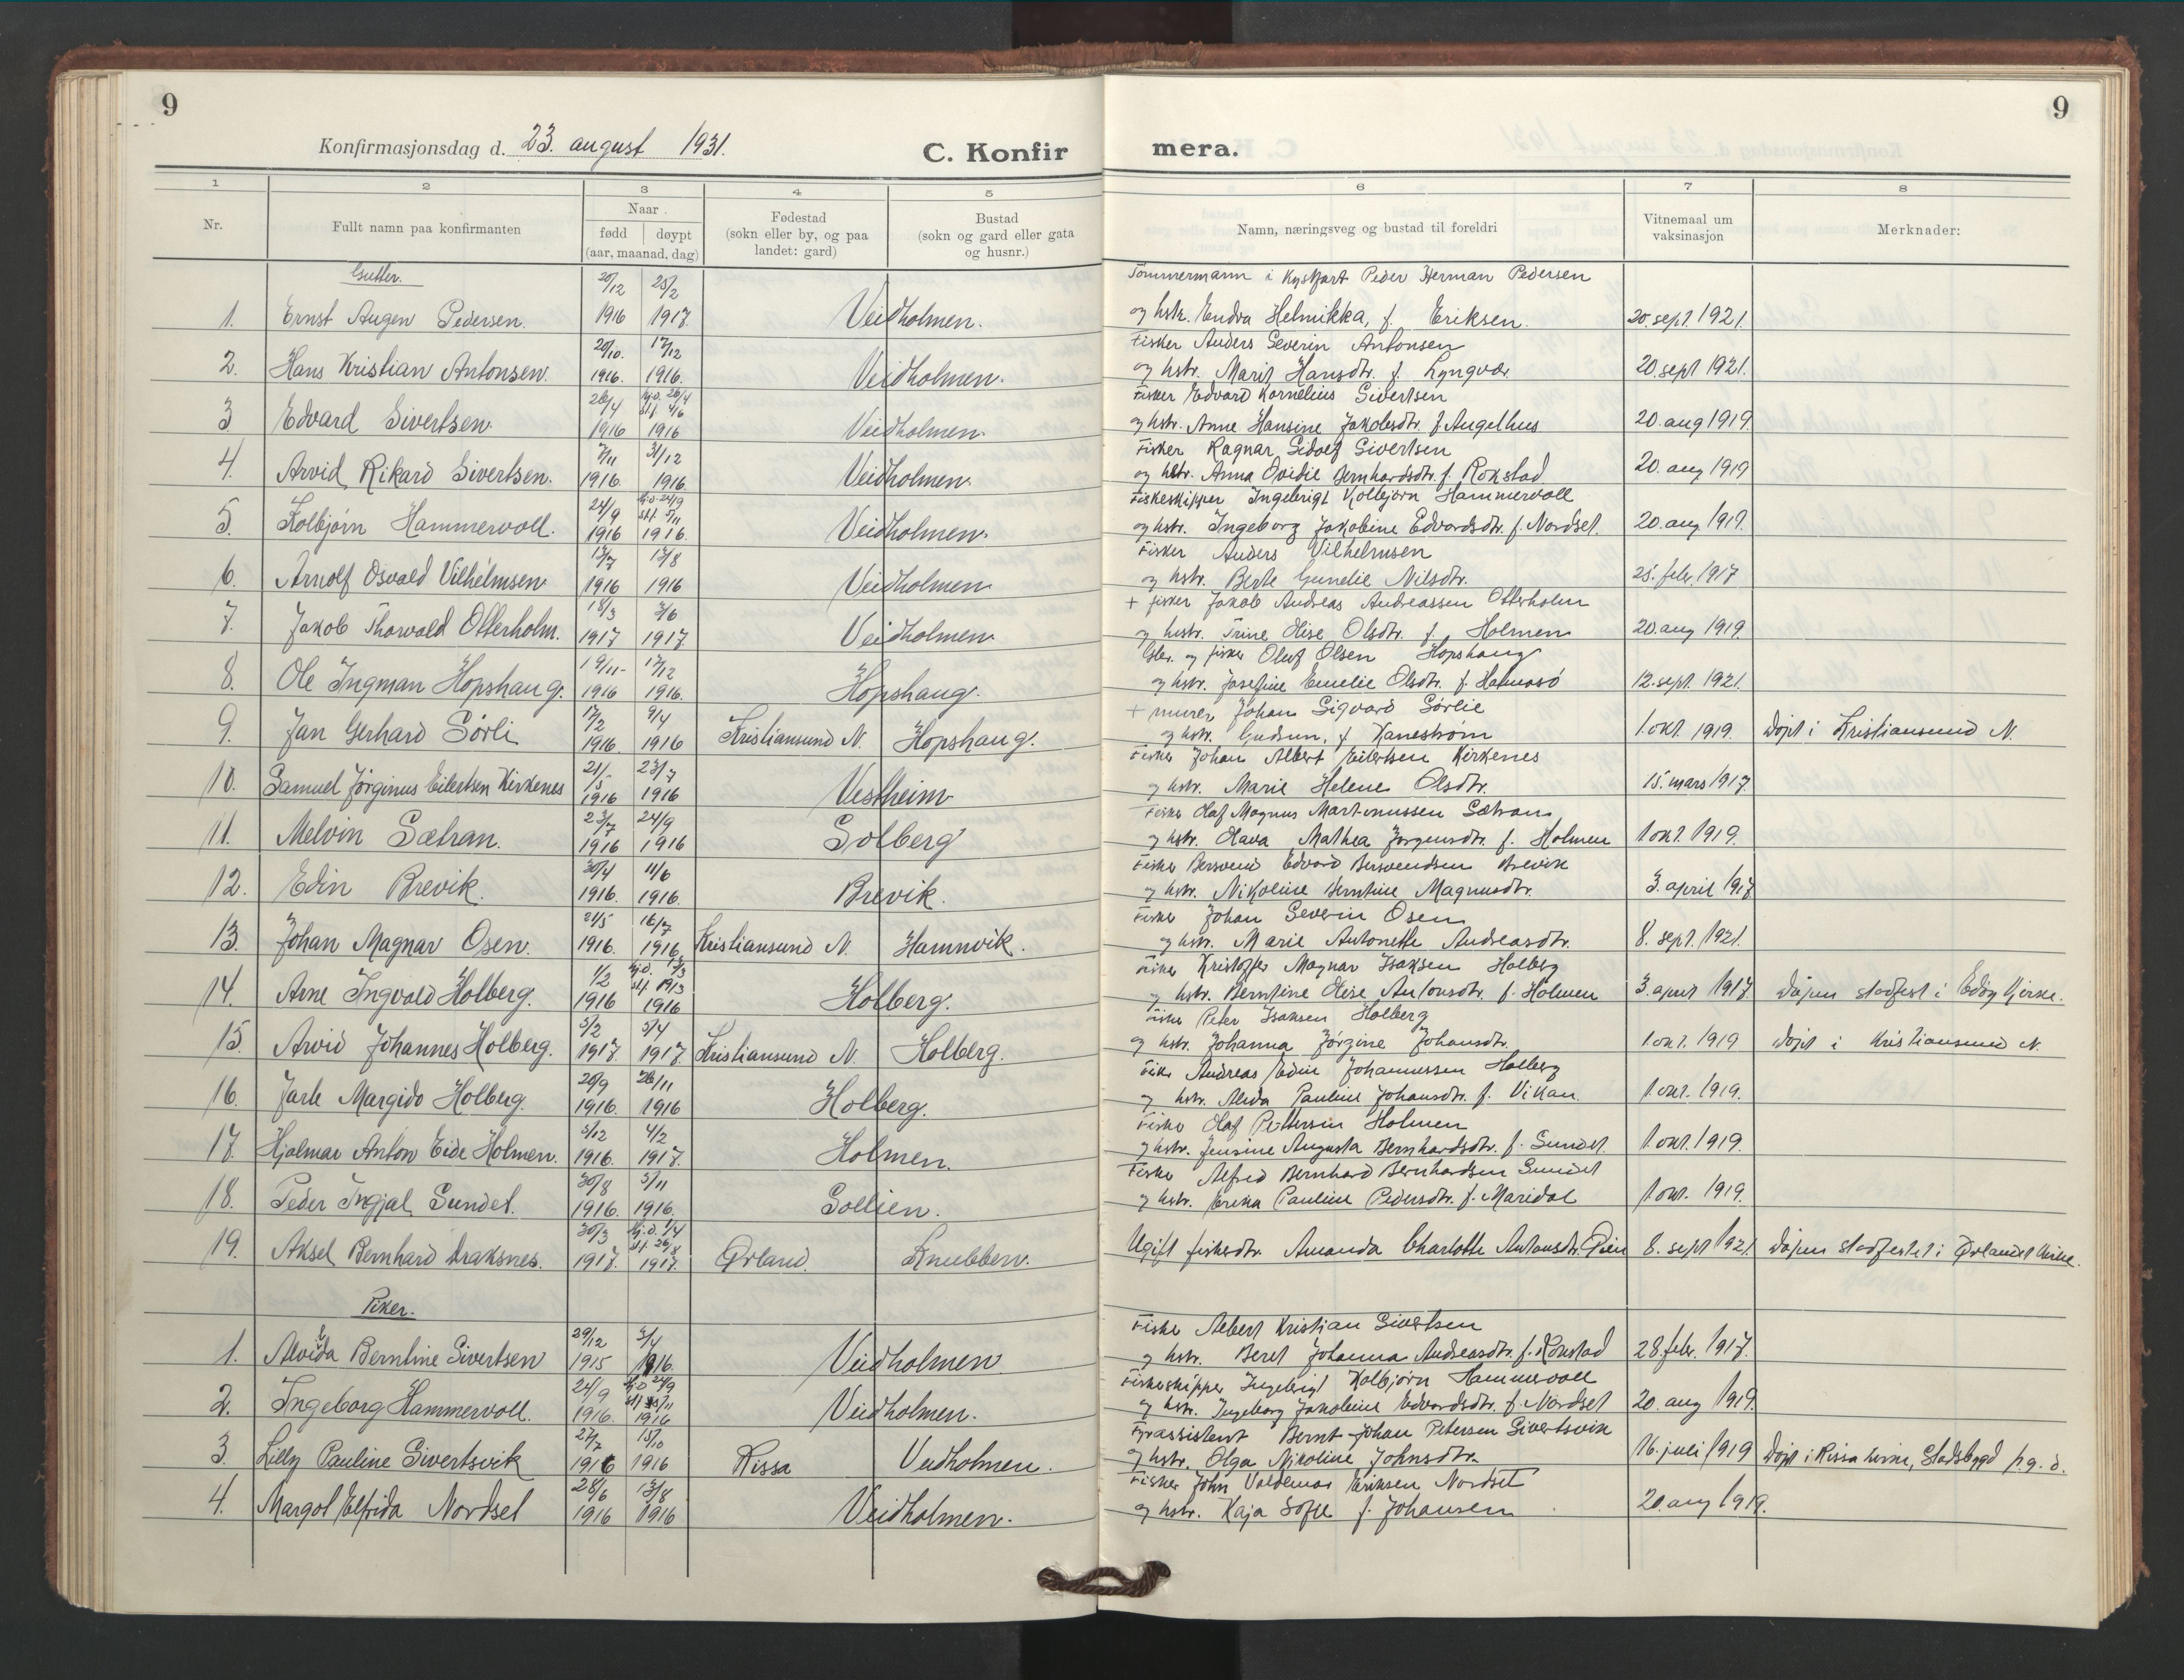 9
9
Konfirmasjonsdag d. 23. august 1931.
C. Konfir
mera.
1
2
3
4
5
6
7
8
Nr.
Fullt namn paa konfirmanten
Naar
født
døypt
(aar, maanad, dag)
Fødestad
(sokn eller by, og paa
landet: gard)
Bustad
(sokn og gard eller gata
og husnr.)
Namn, næringsveg og bustad til foreldri
Vitnemaal um
vaksinasjon
Merknader:
Gutter.
20/12 25/2 Tömmermann i Kystfart Peder Herman Pedersen
1. Ernst Augen Pedersen. 1916 1917. Veidholmen. og hstr. Endra Helmikka, f. Eriksen. 20. sept. 1921.
20/10. 17/12 Fisker Anders Severin Antonsen
2. Hans Kristian Antonsen. 1916. 1916. Veidholmen. og hstr. Marit Hansdtr. f. Lyngvær 20. sept 1921.
26/4 Hj.d. 26/4 stf. 4/6 Fisker Edvard Kornelius Sivertsen
3 Edvard Sivertsen. 1916 1916 Veidholmen. og hstr. Anne Hansine Jakobsdtr. f. Angelhus 20. aug 1919.
7/11 31/12 Fisker Ragnar Sidolf Sivertsen
4. Arvid Rikard Sivertsen. 1916. 1916. Veidholmen. og hstr. Anna Ovidie Bernhardsdtr. f. Rokstad 20. aug 1919
24/9 Hj.d. 24/9 stf. 5/11 Fiskeskipper Ingebrigt Kolbjørn Hammervoll
5. Kolbjørn Hammervoll. 1916 1916. Veidholmen. og hstr. Ingeborg Jakobine Edvardsdtr. f. Nordset. 20. aug 1919.
13/7 13/8 Fisker Anders Vilhelmsen
6. Arnolf Osvald Vilhelmsen 1916 1916 Veidholmen og hstr. Berte Gunelie Nilsdtr. 25. febr. 1917
18/3 3/6 + fisker Jakob Andreas Andreassen Otterholm
7. Jakob Thorvald Otterholm. 1917 1917. Veidholmen og hstr. Trine Elise Olsdtr. f. Holmen 20. aug 1919.
19/11- 17/12 Gbr. og fisker Oluf Olsen Hopshaug
8. Ole Ingman Hopshaug. 1916 1916. Hopshaug. og hstr. Josefine Emelie Olsdtr. f. Halmøsö 12. sept. 1921.
17/2 9/4 + murer Johan Sigvard Sørlie
9. Jan Gerhard Sørli 1916. 1916 Kristiansund N. Hopshaug. og hstr. Gudrun, f. Kanestrøm 1. okt. 1919. Døpt i Kristiansund N.
21/5 23/7 Fisker Johan Albert Eilertsen Kirkenes
10. Samuel Jørginus Eilertsen Kirkenes 1916 1916 Vestheim og hstr. Marie Helene Olsdtr. 15. mars 1917
23/7 24/9 Fisker Olaf Magnus Martinussen Sætran
11. Melvin Sætran. 1916 1916 Solberg og hstr. Olava Mathea Jørgensdtr. f. Holmen 1 okt. 1919.
30/4 11/6 Fisker Bersvend Edvard Bersvendsen Brevik
12. Edin Brevik. 1916. 1916. Brevik. og hstr. Nikoline Berntine Magnusdtr. 3. april 1917
21/5 16/7 Fisker Johan Severin Osen
13. Johan Magnar Osen. 1916. 1916. Kristiansund N. Hamnvik. og hstr. Marie Antonette Andreasdtr. 8. sept. 1921.
1/2 Fisker Kristoffer Magnar Isaksen Holberg
14. Arne Ingvald Holberg. 1916 1916 Holberg. og hstr. Berntine Elise Antonsdtr. f. Holmen 3. april 1917. Døpen stadfest i Edøy Kjerke.
5/2 5/4 Fisker Peter Isaksen Holberg
15. Arvid Johannes Holberg. 1917. 1917. Kristiansund N. Holberg. og hstr. Johanna Jørgine Johansdtr. 1. okt. 1919 Døpt i Kristiansund N.
20/9 26/11 Fisker Andreas Edin Johannessen Holberg
16. Jarle Margido Holberg. 1916. 1916 Holberg. og hstr. Alida Pauline Johansdtr. f. Vikan. 1. okt. 1919.
5/12 4/2 Fisker Olaf Pettersen Holmen
17. Hjalmar Anton Eide Holmen. 1916. 1917. Holmen. og hstr. Jensine Augusta Bernhardsdtr. f. Sundet. 1. okt. 1919.
30/8 5/11 Fisker Alfred Bernhard Bernhardsen Sundet
18. Peder Ingjal Sundet. 1916. 1916. Sollien. og hstr. Erika Pauline Pedersdtr. f. Maridal 1 okt. 1919.
30/3 Hj.d. 1/4 stf. 26/8
19. Aksel Bernhard Draksnes. 1917. 1917. Ørland. Knubben. Ugift fiskerdtr. Amanda Charlotte Antonsdtr. 8. sept 1921. Døpen stadfestet i Ørlandet Kirke.
Piker.
29/12 3/4 Fisker Albert Kristian Sivertsen
1. Alvida Berntine Sivertsen 1915 1916. Veidholmen og hstr. Beret Johanna Andreasdtr. f. Rokstad 28. febr. 1917.
24/9 Hj.d 24/9 stf 5/11 Fiskeskipper Ingebrigt Kolbjørn Hammervoll
2. Ingeborg Hammervoll. 1916. 1916 Veidholmen. og hstr. Ingeborg Jakobine Edvardsdtr. f. Nordset 20. aug 1919.
27/7 15/10 Fyrassistent Bernt Johan Petersen Sivertsvik
3. Lilly Pauline Sivertsvik 1916 1916 Rissa Veidholmen. og hstr. Olga Nikoline Johnsdtr. 16. juli 1919 Døpt i Rissa kirke, Stadsbygd p.g.d.
28/6 13/8 Fisker John Valdemar Eriksen Nordset
4. Margot Elfrida Nordset 1916 1916 Veidholmen. og hstr. Kaja Sofie f. Johansen 20. aug 1919.